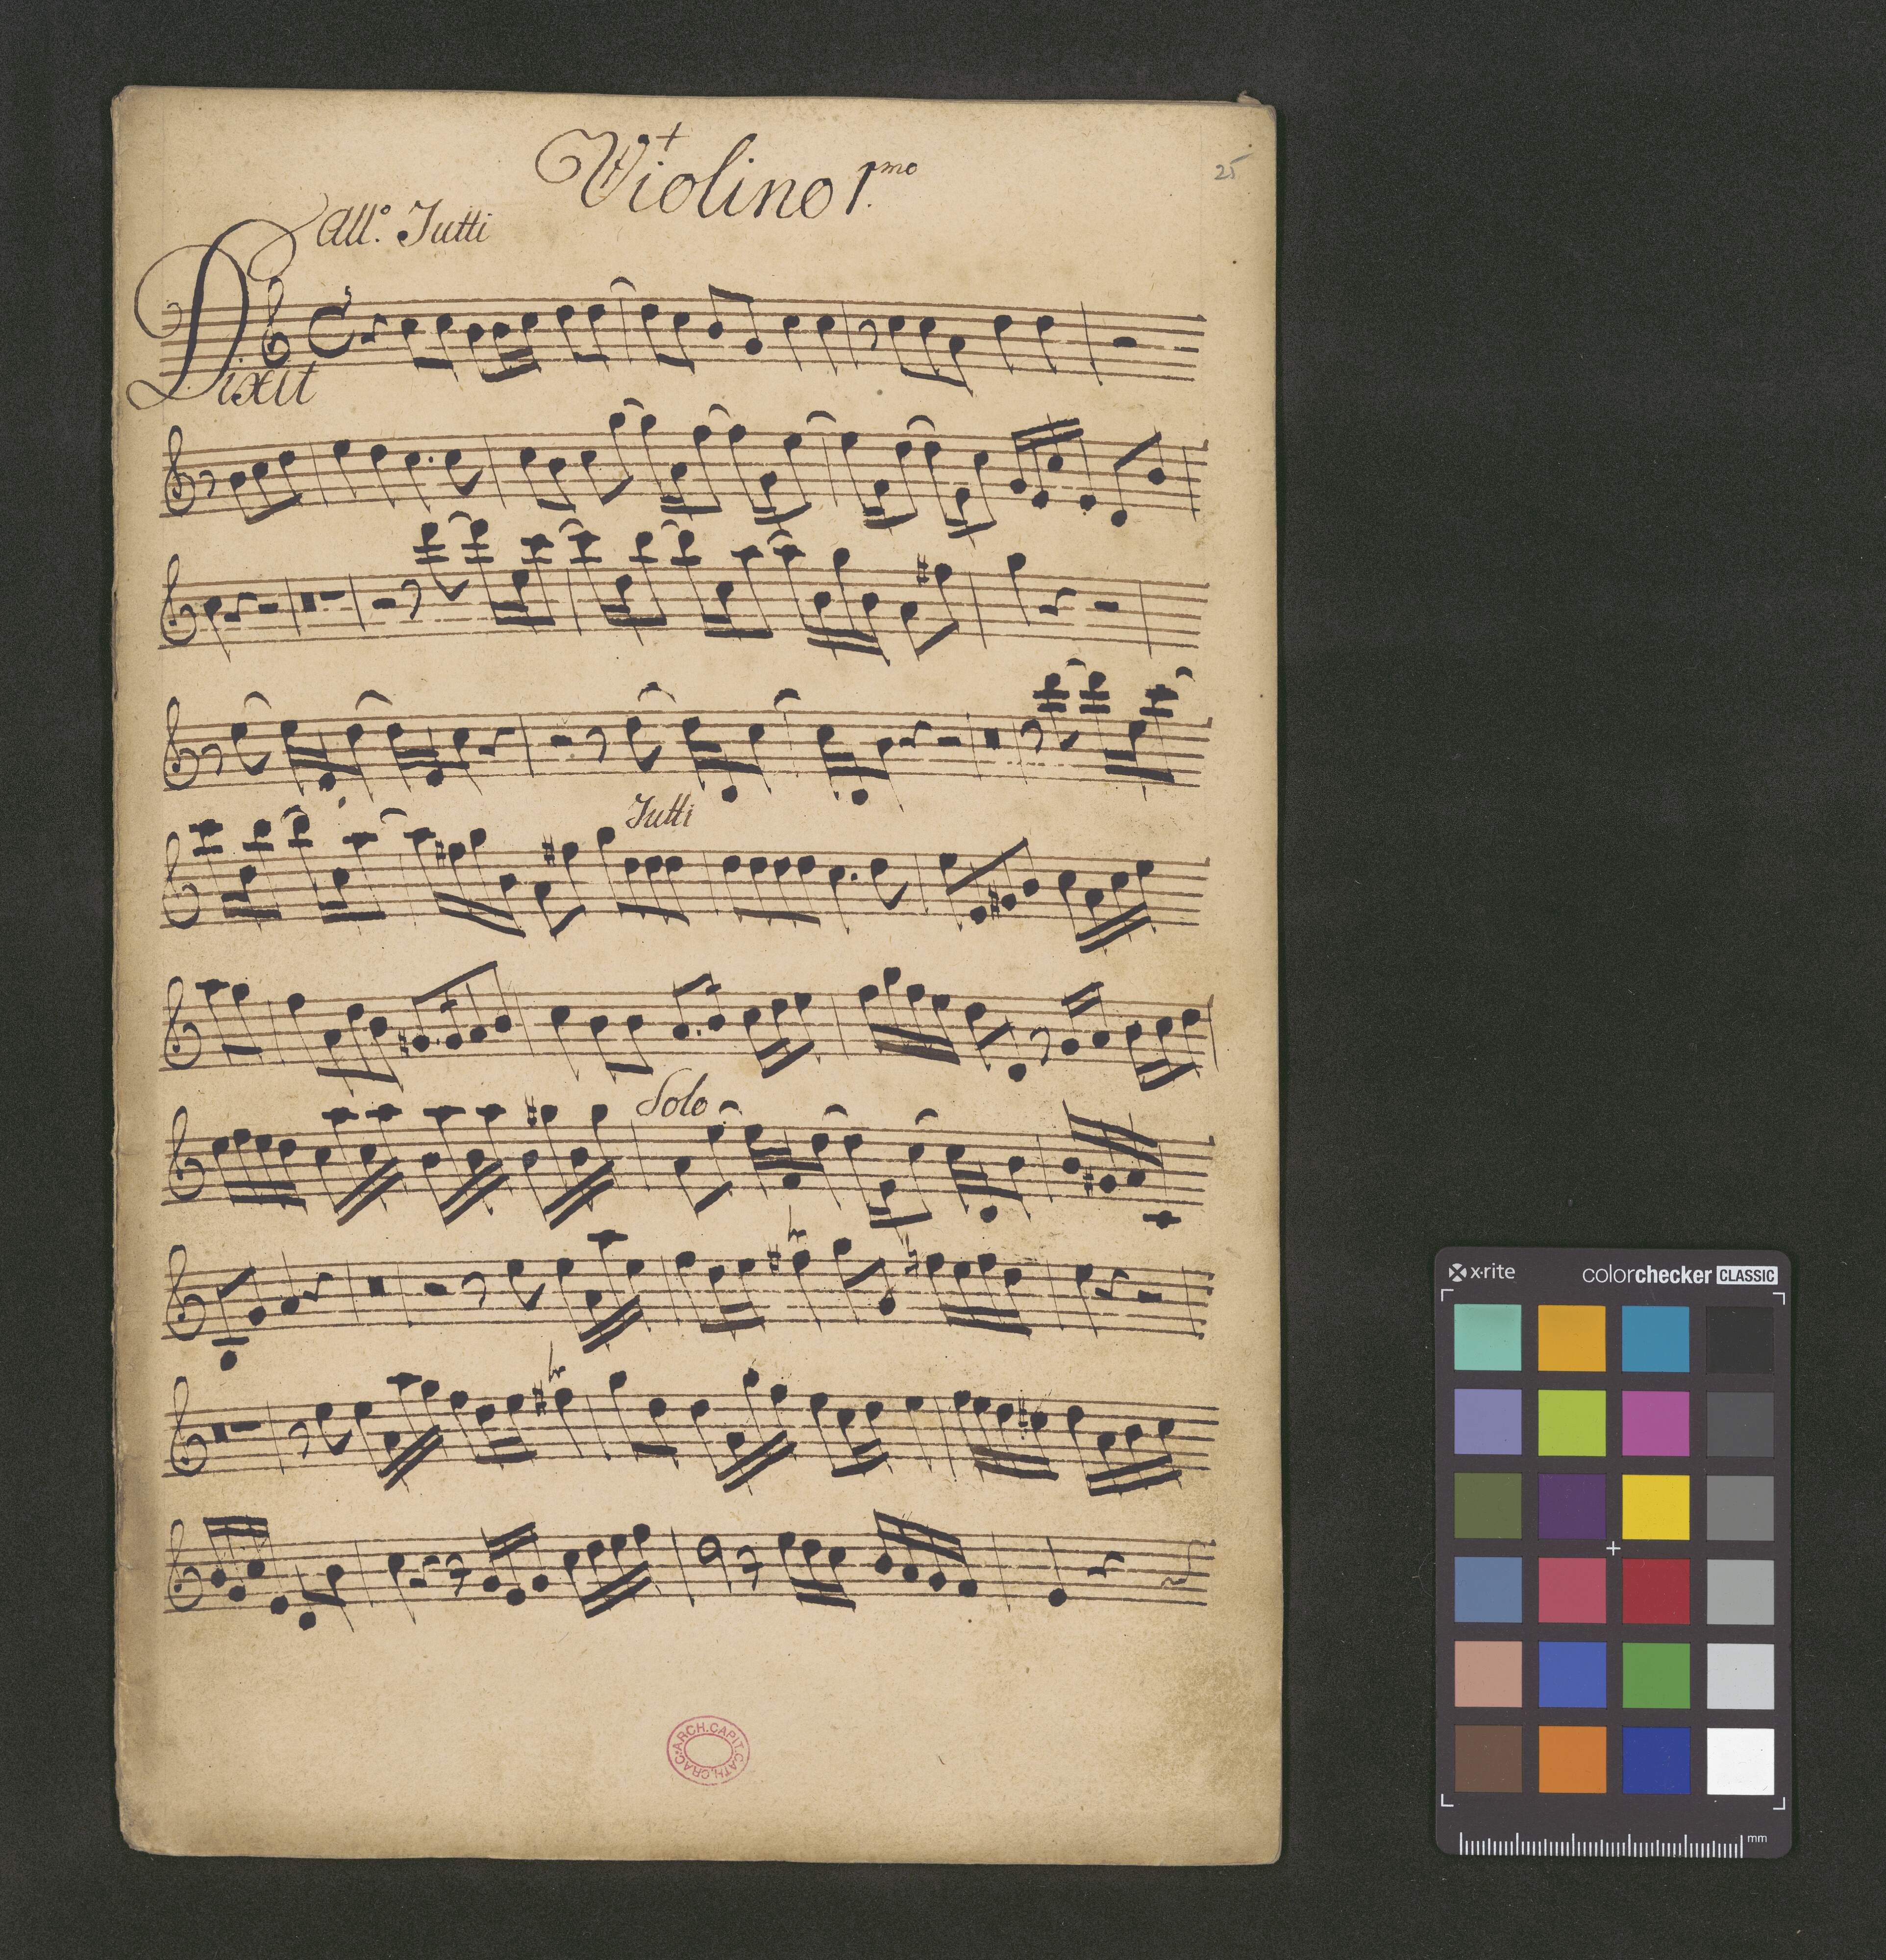 Violino 1.mo
25
All.o Tutti
Dixit
Tutti
Solo
ARCH.CAPIT.CATH.CRAC.
x-rite
colorchecker CLASSIC
mm